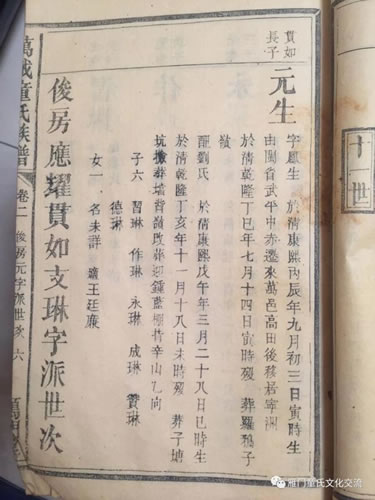 十一世
貫如
長子
元生
字鳳生 於清康熙丙辰年九月初三日寅時生
由閩省武平中赤遷來萬邑高田後移居寧洲
於清乾隆丁巳年七月十四日寅時歿 葬羅鵝子
嶺
配劉氏 於清康熙戊午年三月二十八日巳時生
於清乾隆丁亥年十一月十八日未時歿 葬子塘
坑 葬 改葬迎鍾藍棚背辛山乙向
子六 習琳 作琳 永琳 成琳 贊琳
德琳
女一 名未詳 嬪王廷廉
俊房應耀貫如支琳字派世次
萬載童氏族譜 卷二 俊房元字派世次 六
雁门童氏文化交流